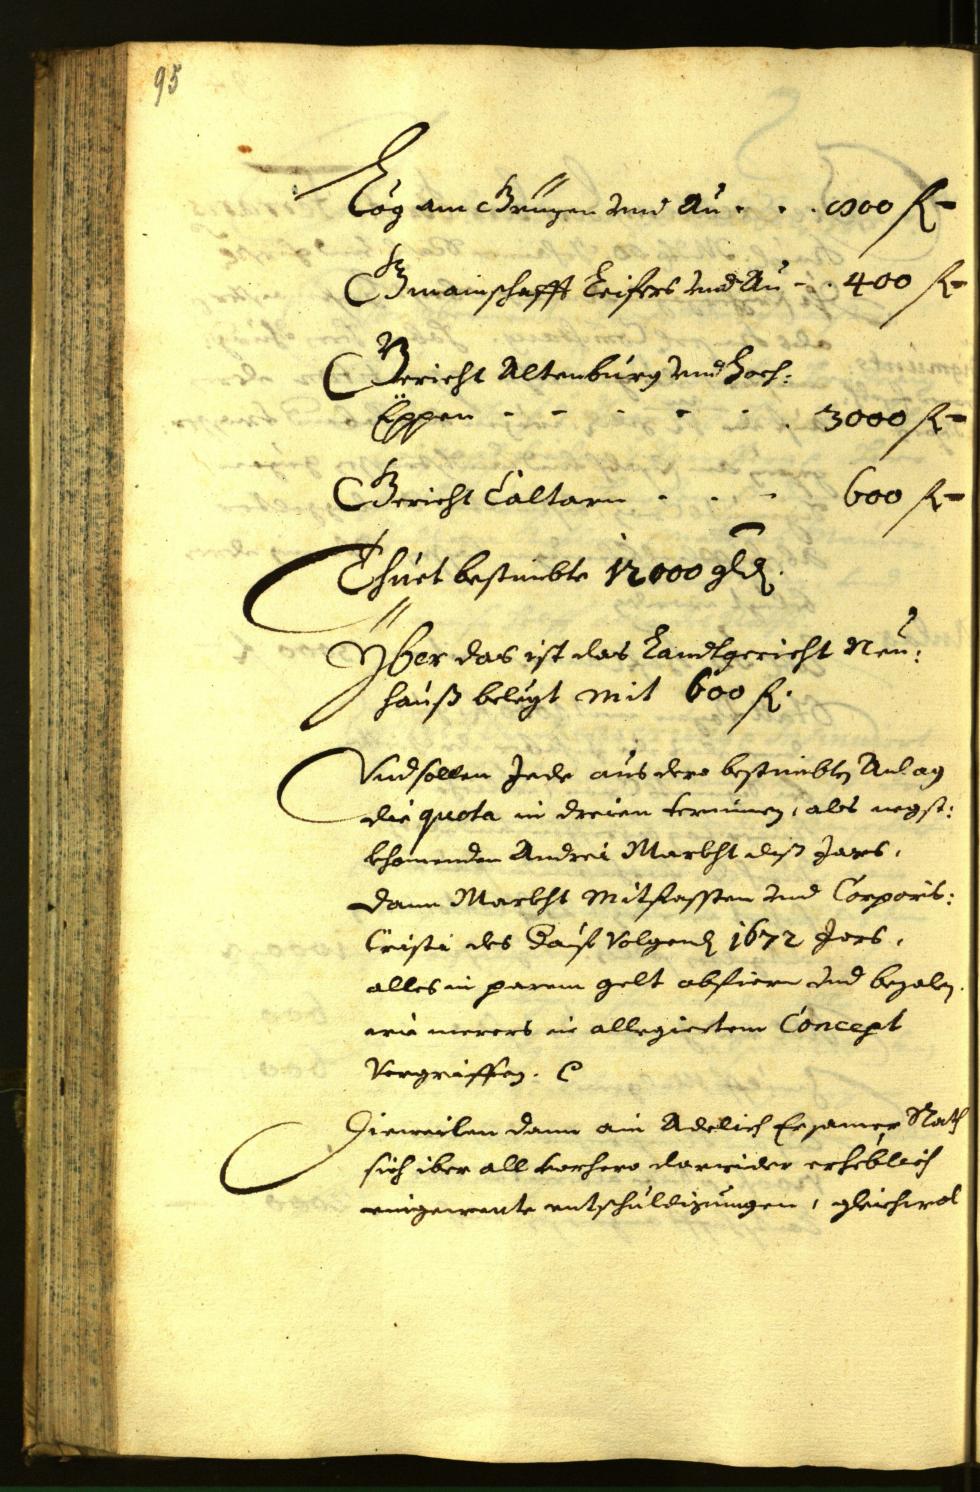 95
Eög am Grungen vnd Au . . . 800 fl
Gmainschafft Leifers vnd Au - . 400 fl
Gericht Altenburg vnd Hoch:
Eppen - - . - . . 3000 fl
Gericht Caltarn - . - 600 fl
Thuet bestimbte 12000 gld.
Yber das ist das Landtgericht Neu:
hauß belegt mit 600 fl.
Vnd sollen Jede aus dero bestimbten Anlag
die quota in dreien terminen, als negst:
khomenden Andreä Markht diß Jars,
dann Markht Mitfassten vnd Corporis:
Cristi des Volgend 1672 Jars,
alles in parem gelt abfiern vnd bezalen
wie merers in allegiertem Concept
Vergriffen.
Dieweilen dann ain Adelich Ersamer Rath
sich iber all vorhero darwider erheblich
eingewente entschuldigungen, gleichwol